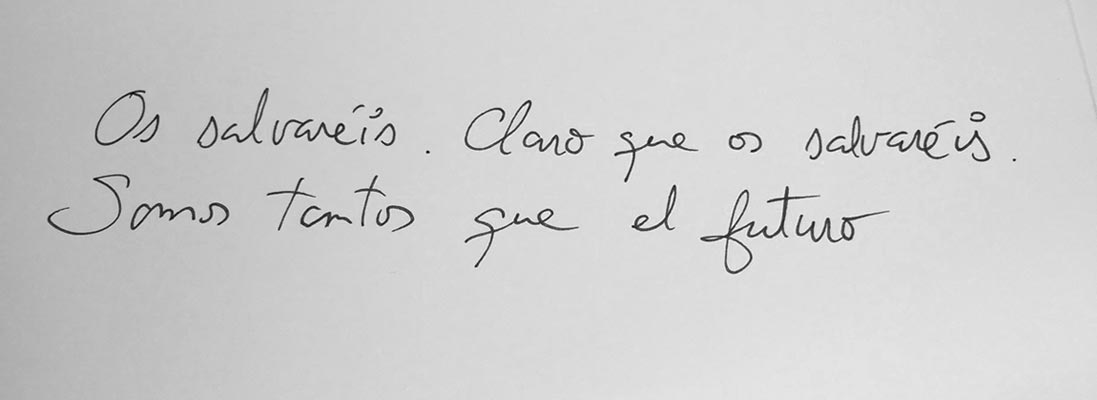 Os salvaréis. Claro que os salvaréis.
Somos tantos que el futuro